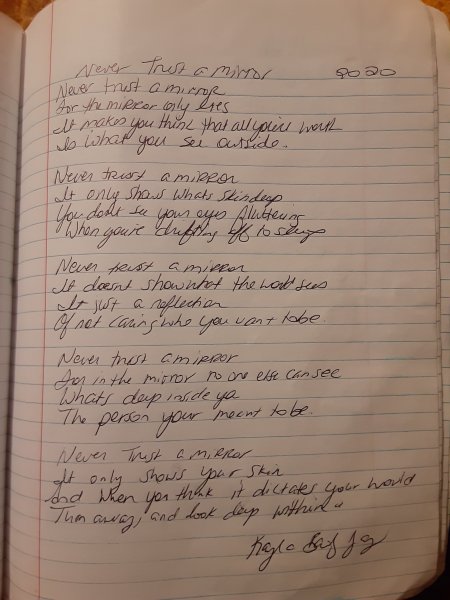 Never Trust a mirror 2020
Never trust a mirror
For the mirror only lies
It makes you think that all you're worth
Is What you see outside.
Never trust a mirror
It only shows whats skin deep
You don't see your eyes fluttering
When you're drifting off to sleep
Never trust a mirror
It doesnt show what the world sees
It just a reflection
Of not caring who you want to be.
Never trust a mirror
For in the mirror no one else can see
Whats deep inside ya
The person your meant to be.
Never Trust a mirror
It only shows your skin
and when you think it dictates your world
Turn away, and look deep within
Kayla